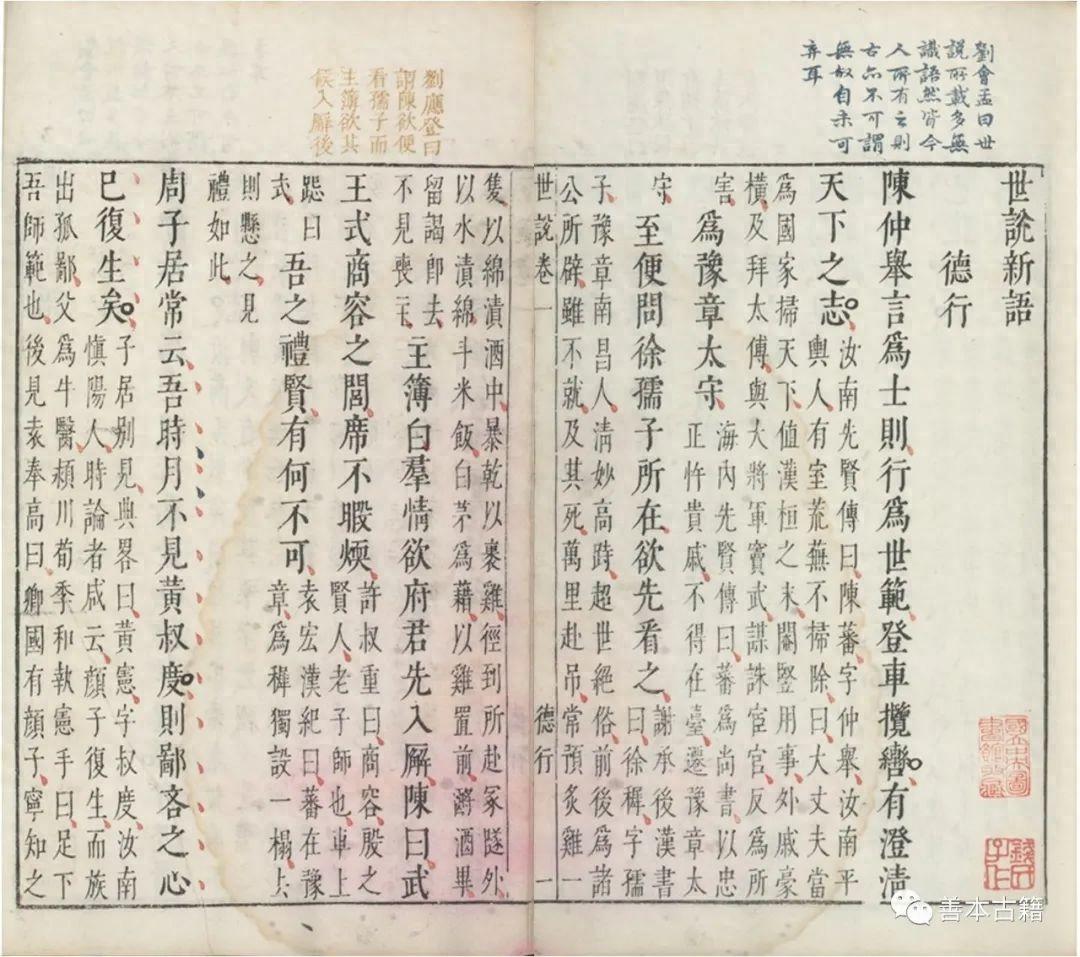 劉會孟曰世
說所載多無
識語然皆今
人所有之則
古亦不可謂
無故自未可
弃耳
世說新語
德行
陳仲舉言為士則行為世範登車攬轡有澄清
天下之志
汝南先賢傳曰陳蕃字仲舉汝南平
輿人有室荒蕪不掃除曰大丈夫當
為國家掃天下值漢桓之末閹豎用事外戚豪
橫及拜太傅與大將軍竇武謀誅宦官反為所
害
為豫章太守
海內先賢傳曰蕃為尚書以忠
正忤貴戚不得在臺遷豫章太
守
至便問徐孺子所在欲先看之
謝承後漢書
曰徐穉字孺
子豫章南昌人清妙高跱超世絕俗前後為諸
公所辟雖不就及其死萬里赴吊常預炙雞一
世說卷一 德行 一
劉應登曰
謂陳欲便
看孺子而
主簿欲其
候入廨後
隻以綿漬酒中暴乾以裹雞徑到所赴冢隧外
以水漬綿斗米飯白茅為藉以雞置前酹酒畢
留謁即去
不見喪主
主簿白羣情欲府君先入廨陳曰武
王式商容之閭席不暇煗
許叔重曰商容殷之
賢人老子師也車上
跽曰
式
吾之禮賢有何不可
袁宏漢紀曰蕃在豫
章為穉獨設一榻去
則懸之見
禮如此
周子居常云吾時月不見黃叔度則鄙吝之心
已復生矣
子居別見典畧曰黃憲字叔度汝南
慎陽人時論者咸云顏子復生而族
出孤鄙父為牛醫潁川荀季和執憲手曰足下
吾師範也後見袁奉高曰卿國有顏子寧知之
國立中央圖書館收藏
善本古籍